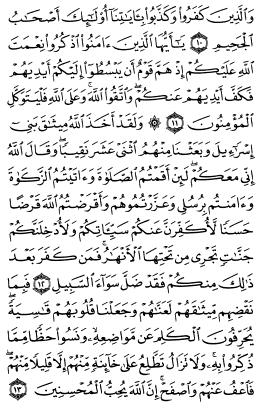 وَالَّذِينَ كَفَرُوا وَكَذَّبُوا بِآيَاتِنَا أُولَٰئِكَ أَصْحَابُ
الْجَحِيمِ ۝١٠ يَا أَيُّهَا الَّذِينَ آمَنُوا اذْكُرُوا نِعْمَتَ
اللَّهِ عَلَيْكُمْ إِذْ هَمَّ قَوْمٌ أَن يَبْسُطُوا إِلَيْكُمْ أَيْدِيَهُمْ
فَكَفَّ أَيْدِيَهُمْ عَنكُمْ ۖ وَاتَّقُوا اللَّهَ ۚ وَعَلَى اللَّهِ فَلْيَتَوَكَّلِ
الْمُؤْمِنُونَ ۝١١ ۞ وَلَقَدْ أَخَذَ اللَّهُ مِيثَاقَ بَنِي
إِسْرَائِيلَ وَبَعَثْنَا مِنْهُمُ اثْنَيْ عَشَرَ نَقِيبًا ۖ وَقَالَ اللَّهُ
إِنِّي مَعَكُمْ ۖ لَئِنْ أَقَمْتُمُ الصَّلَاةَ وَآتَيْتُمُ الزَّكَاةَ
وَآمَنتُم بِرُسُلِي وَعَزَّرْتُمُوهُمْ وَأَقْرَضْتُمُ اللَّهَ قَرْضًا
حَسَنًا لَّأُكَفِّرَنَّ عَنكُمْ سَيِّئَاتِكُمْ وَلَأُدْخِلَنَّكُمْ
جَنَّاتٍ تَجْرِي مِن تَحْتِهَا الْأَنْهَارُ ۚ فَمَن كَفَرَ بَعْدَ
ذَٰلِكَ مِنكُمْ فَقَدْ ضَلَّ سَوَاءَ السَّبِيلِ ۝١٢ فَبِمَا
نَقْضِهِم مِّيثَاقَهُمْ لَعَنَّاهُمْ وَجَعَلْنَا قُلُوبَهُمْ قَاسِيَةً ۖ
يُحَرِّفُونَ الْكَلِمَ عَن مَّوَاضِعِهِ ۙ وَنَسُوا حَظًّا مِّمَّا
ذُكِّرُوا بِهِ ۚ وَلَا تَزَالُ تَطَّلِعُ عَلَىٰ خَائِنَةٍ مِّنْهُمْ إِلَّا قَلِيلًا مِّنْهُمْ ۖ
فَاعْفُ عَنْهُمْ وَاصْفَحْ ۚ إِنَّ اللَّهَ يُحِبُّ الْمُحْسِنِينَ ۝١٣